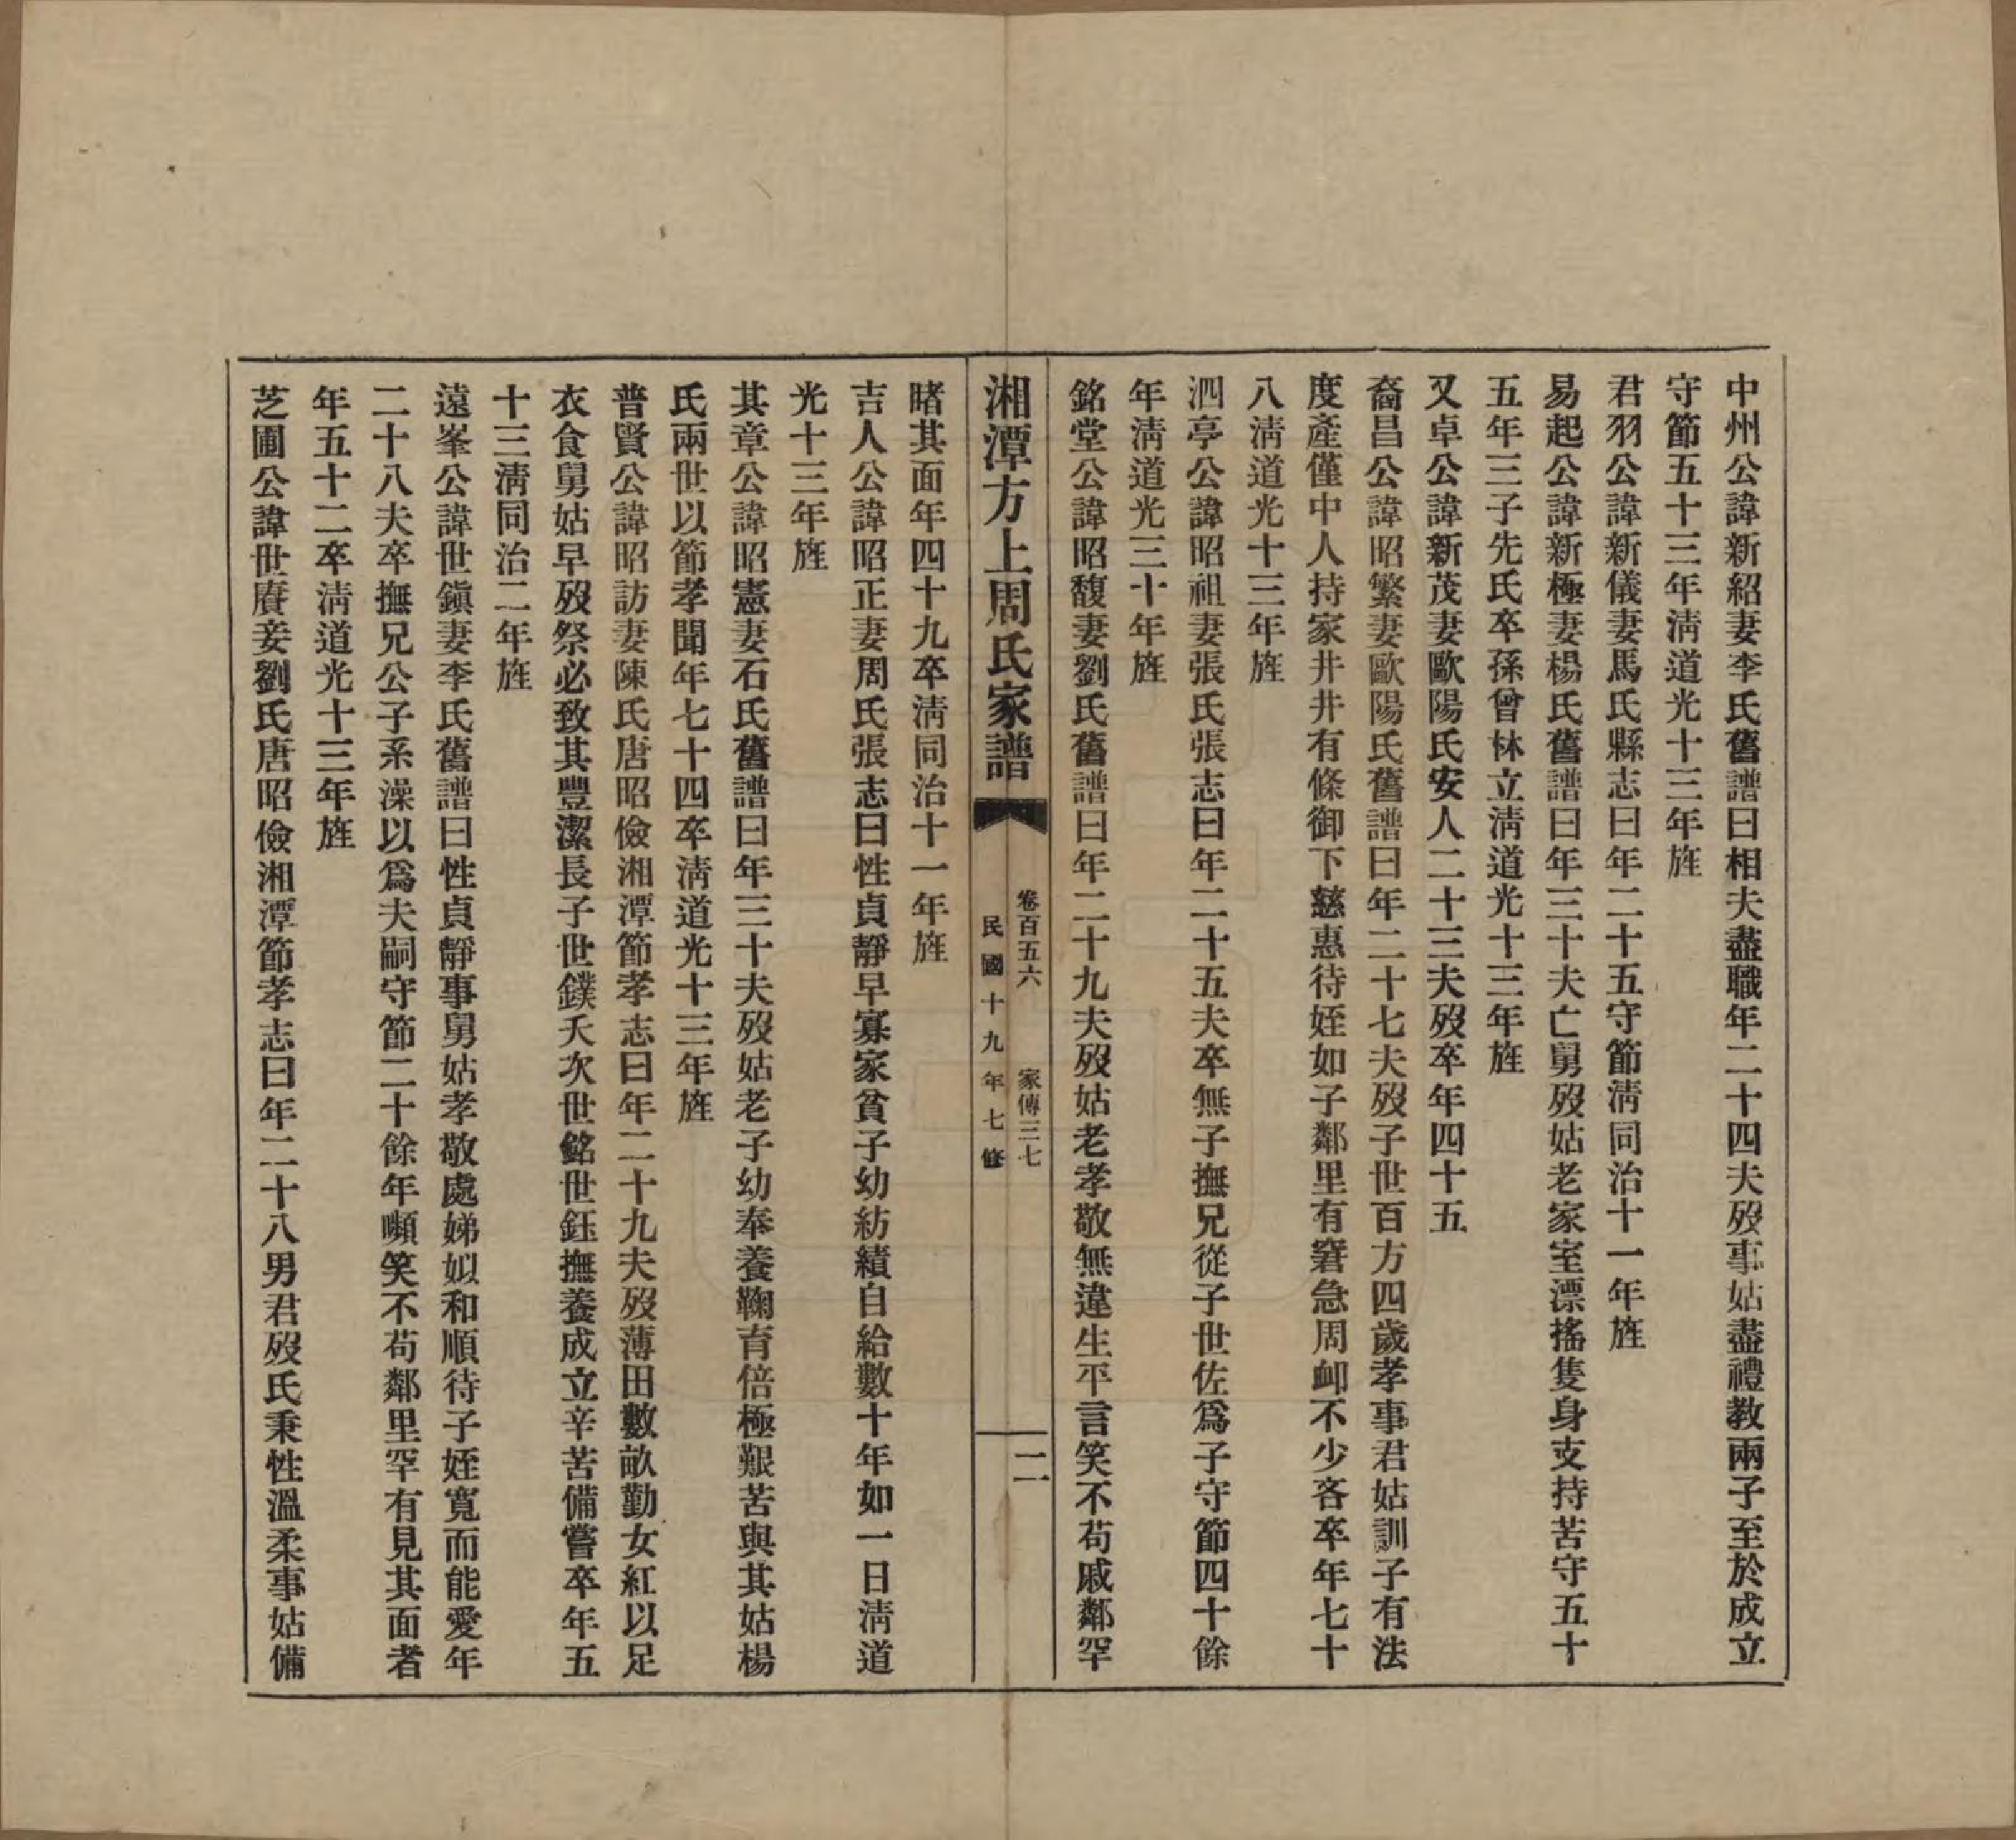 中州公諱新紹妻李氏舊譜曰相夫盡職年二十四夫歿事姑盡禮教兩子至於成立
守節五十三年淸道光十三年旌
君羽公諱新儀妻馬氏縣志曰年二十五守節淸同治十一年旌
易起公諱新極妻楊氏舊譜曰年三十夫亡舅歿姑老家室漂搖隻身支持苦守五十
五年三子先氏卒孫曾林立淸道光十三年旌
又卓公諱新茂妻歐陽氏安人二十三夫歿卒年四十五
裔昌公諱昭繁妻歐陽氏舊譜曰年二十七夫歿子世百方四歲孝事君姑訓子有法
度產僅中人持家井井有條御下慈惠待姪如子鄰里有窘急周卹不少吝卒年七十
八淸道光十三年旌
泗亭公諱昭祖妻張氏張志曰年二十五夫卒無子撫兄從子世佐爲子守節四十餘
年淸道光三十年旌
銘堂公諱昭馥妻劉氏舊譜曰年二十九夫歿姑老孝敬無違生平言笑不苟戚鄰罕
湘潭方上周氏家譜
卷百五六 家傳三七
民國十九年七修
二
睹其面年四十九卒淸同治十一年旌
吉人公諱昭正妻周氏張志曰性貞靜早寡家貧子幼紡績自給數十年如一日淸道
光十三年旌
其章公諱昭憲妻石氏舊譜曰年三十夫歿姑老子幼奉養鞠育倍極艱苦與其姑楊
氏兩世以節孝聞年七十四卒淸道光十三年旌
普賢公諱昭訪妻陳氏唐昭儉湘潭節孝志曰年二十九夫歿薄田數畝勤女紅以足
衣食舅姑早歿祭必致其豐潔長子世鏷夭次世銘世鈺撫養成立辛苦備嘗卒年五
十三淸同治二年旌
遠峯公諱世鎭妻李氏舊譜曰性貞靜事舅姑孝敬處娣姒和順待子姪寬而能愛年
二十八夫卒撫兄公子系澡以爲夫嗣守節二十餘年嚬笑不苟鄰里罕有見其面者
年五十二卒淸道光十三年旌
芝圃公諱世賡妾劉氏唐昭儉湘潭節孝志曰年二十八男君歿氏秉性溫柔事姑備